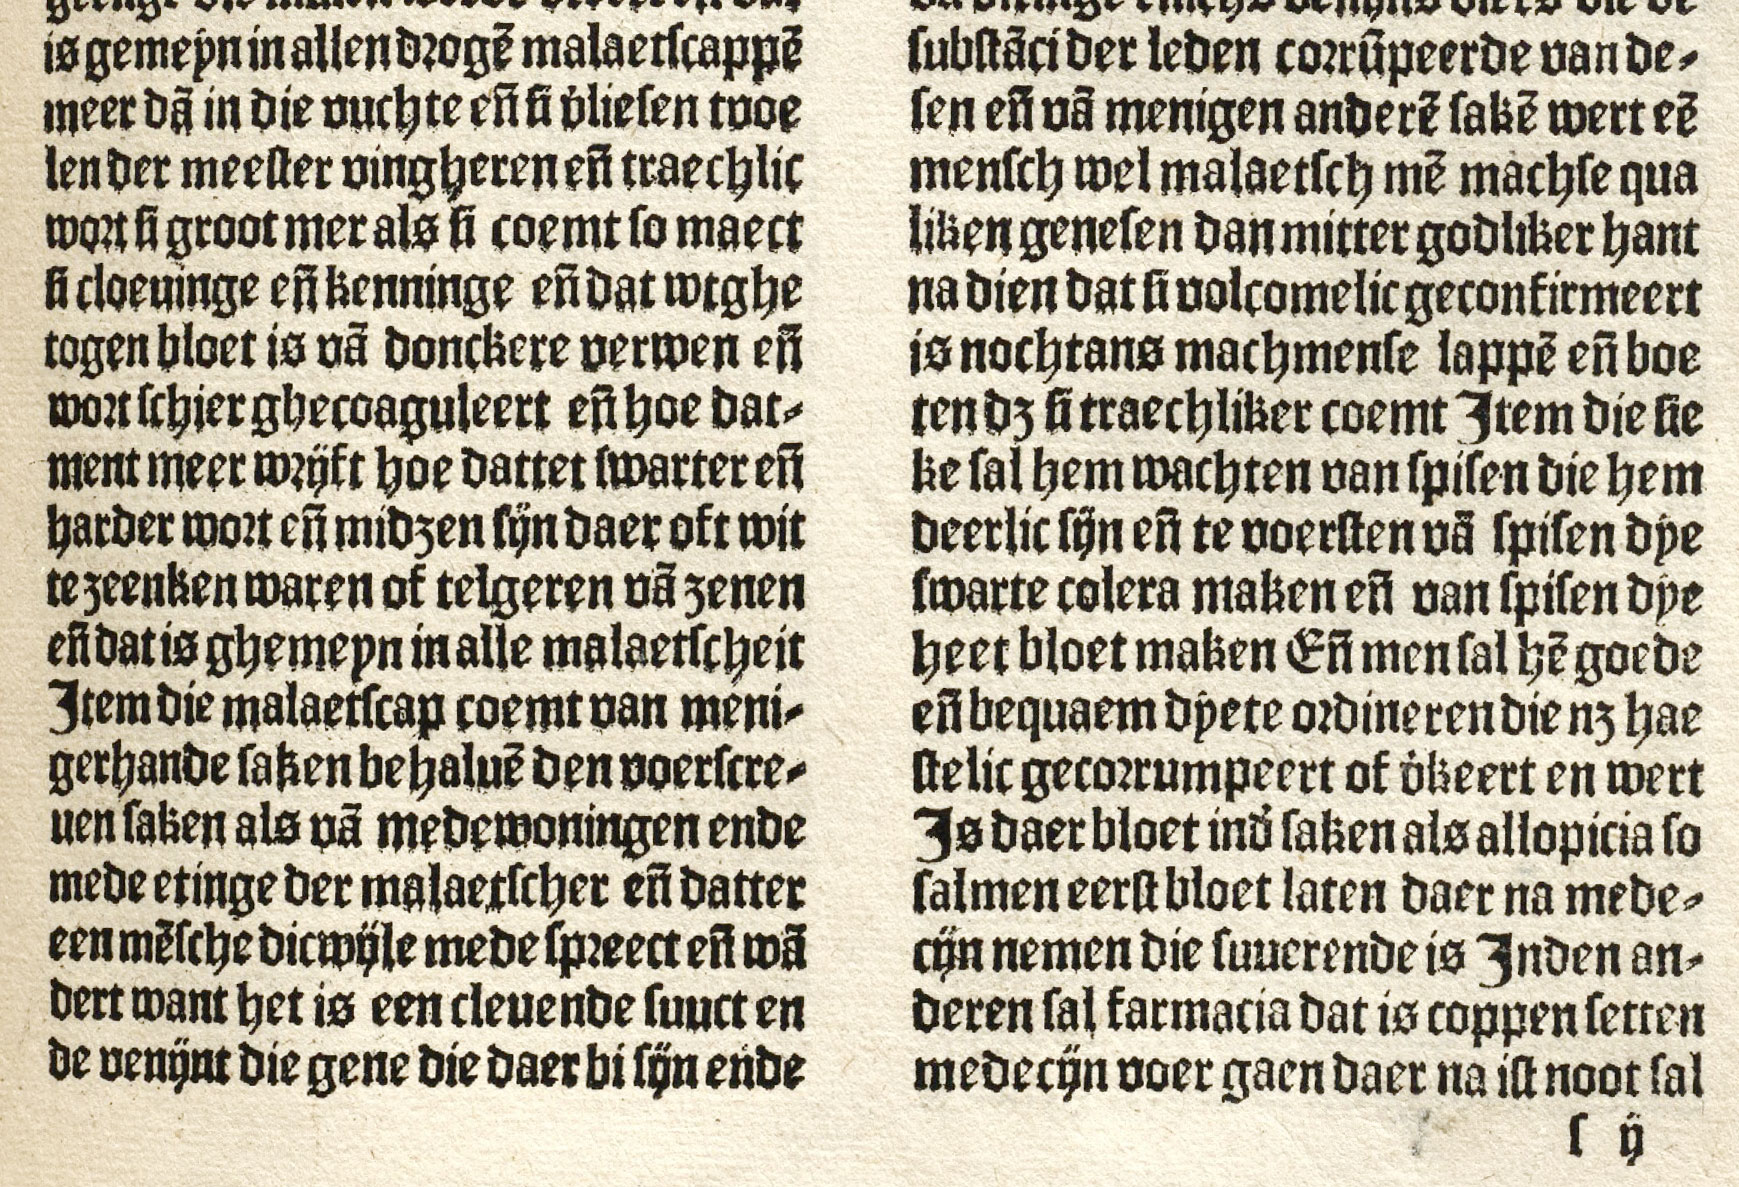 is gemeyn in allen drogē malaetscappē
meer dā in die vuchte eñ si v̓liesen tvoe
len der meester vingheren eñ traechlic
wort si groot mer als si coemt so maect
si cloeuinge eñ kenninge eñ dat wtghe
togen bloet is vā donckere verwen eñ
wort schier ghecoaguleert eñ hoe dat-
ment meer wrijft hoe dattet swarter eñ
harder wort eñ midzen sijn daer oft wit
te zeenken waren of telgeren vā zenen
eñ dat is ghemeyn in alle malaetscheit
Item die malaetscap coemt van meni-
gerhande saken behaluē den voerscre-
uen saken als vā medewoningen ende
mede etinge der malaetscher eñ datter
een mēsche dicwijle mede spreect eñ wā
dert want het is een cleuende suuct en
de venijnt die gene die daer bi sijn ende
substāci der leden corrūpeerde van de-
sen eñ vā menigen anderē sakē wert eē
mensch wel malaetsch mē machse qua
liken genesen dan mitter godliker hant
na dien dat si volcomelic geconfirmeert
is nochtans machmense lappē eñ boe
ten dz si traechliker coemt Item die sie
ke sal hem wachten van spisen die hem
deerlic sijn eñ te voersten vā spisen dye
swarte colera maken eñ van spisen dye
heet bloet maken Eñ men sal hē goede
eñ bequaem dyete ordineren die nz hae
stelic gecorrumpeert of v̓keert en wert
Is daer bloet ind̓ saken als allopicia so
salmen eerst bloet laten daer na mede-
cijn nemen die suuerende is Inden an-
deren sal farmacia dat is coppen setten
medecijn voer gaen daer na ist noot sal
s ij